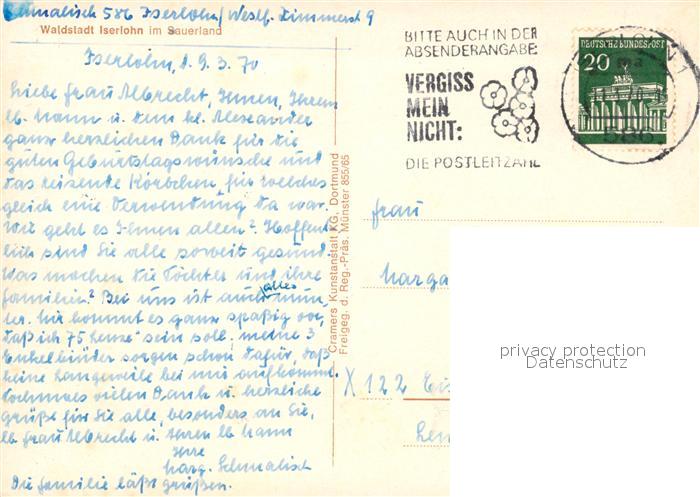 Schmalisch 586 Iserlohn/Westf. Zimmerst 9
Waldstadt Iserlohn im Sauerland
Iserlohn, d. 9. 3. 70
Liebe Frau Albrecht, Ihnen, Ihrem
lb. Mann u. dem kl. Alexander
ganz herzlichen Dank für die
guten Geburtstagswünsche und
das reizende Körbchen, für welches
gleich eine Verwendung da war.
Wie geht es Ihnen allen? Hoffent
lich sind Sie alle soweit gesund.
Was machen die Töchter und ihre
Familien? Bei uns ist auch alles mun-
ter. Mir kommt es ganz spaßig vor,
daß ich 75 Lenze" sein soll. Meine 3
Enkelkinder sorgen schon dafür, daß
keine Langeweile bei mir aufkommt.
Nochmals vielen Dank u. herzliche
Grüße für Sie alle, besonders an Sie,
lb Frau Albrecht u. Ihren lb Mann
Ihre
Marg. Schmalisch
Die Familie läßt grüßen.
Cramers Kunstanstalt KG, Dortmund
Freigeg. d. Reg.-Präs. Münster 855/65
BITTE AUCH IN DER
ABSENDERANGABE
VERGISS
MEIN
NICHT:
DIE POSTLEITZAHL
DEUTSCHE BUNDESPOST
20
586
Frau
Marga
X 122 Eis
Len
privacy protection
Datenschutz